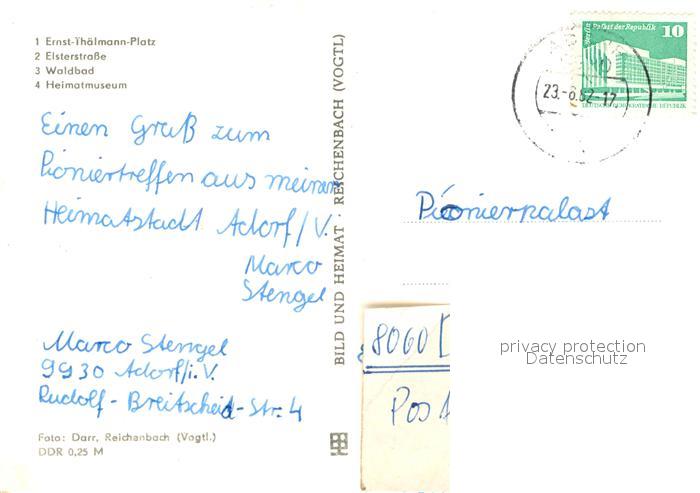 1 Ernst-Thälmann-Platz
2 Elsterstraße
3 Waldbad
4 Heimatmuseum
Einen Gruß zum
Pioniertreffen aus meiner
Heimatstadt Adorf/V.
Marco
Stengel
Marco Stengel
9930 Adorf/i.V.
Rudolf-Breitscheid-Str. 4
Foto: Darr, Reichenbach (Vogtl.)
DDR 0,25 M
BILD UND HEIMAT · REICHENBACH (VOGTL)
Berlin, Palast der Republik
10
DEUTSCHE DEMOKRATISCHE REPUBLIK
23.-8.82-17
Pionierpalast
8060
Post
privacy protection
Datenschutz